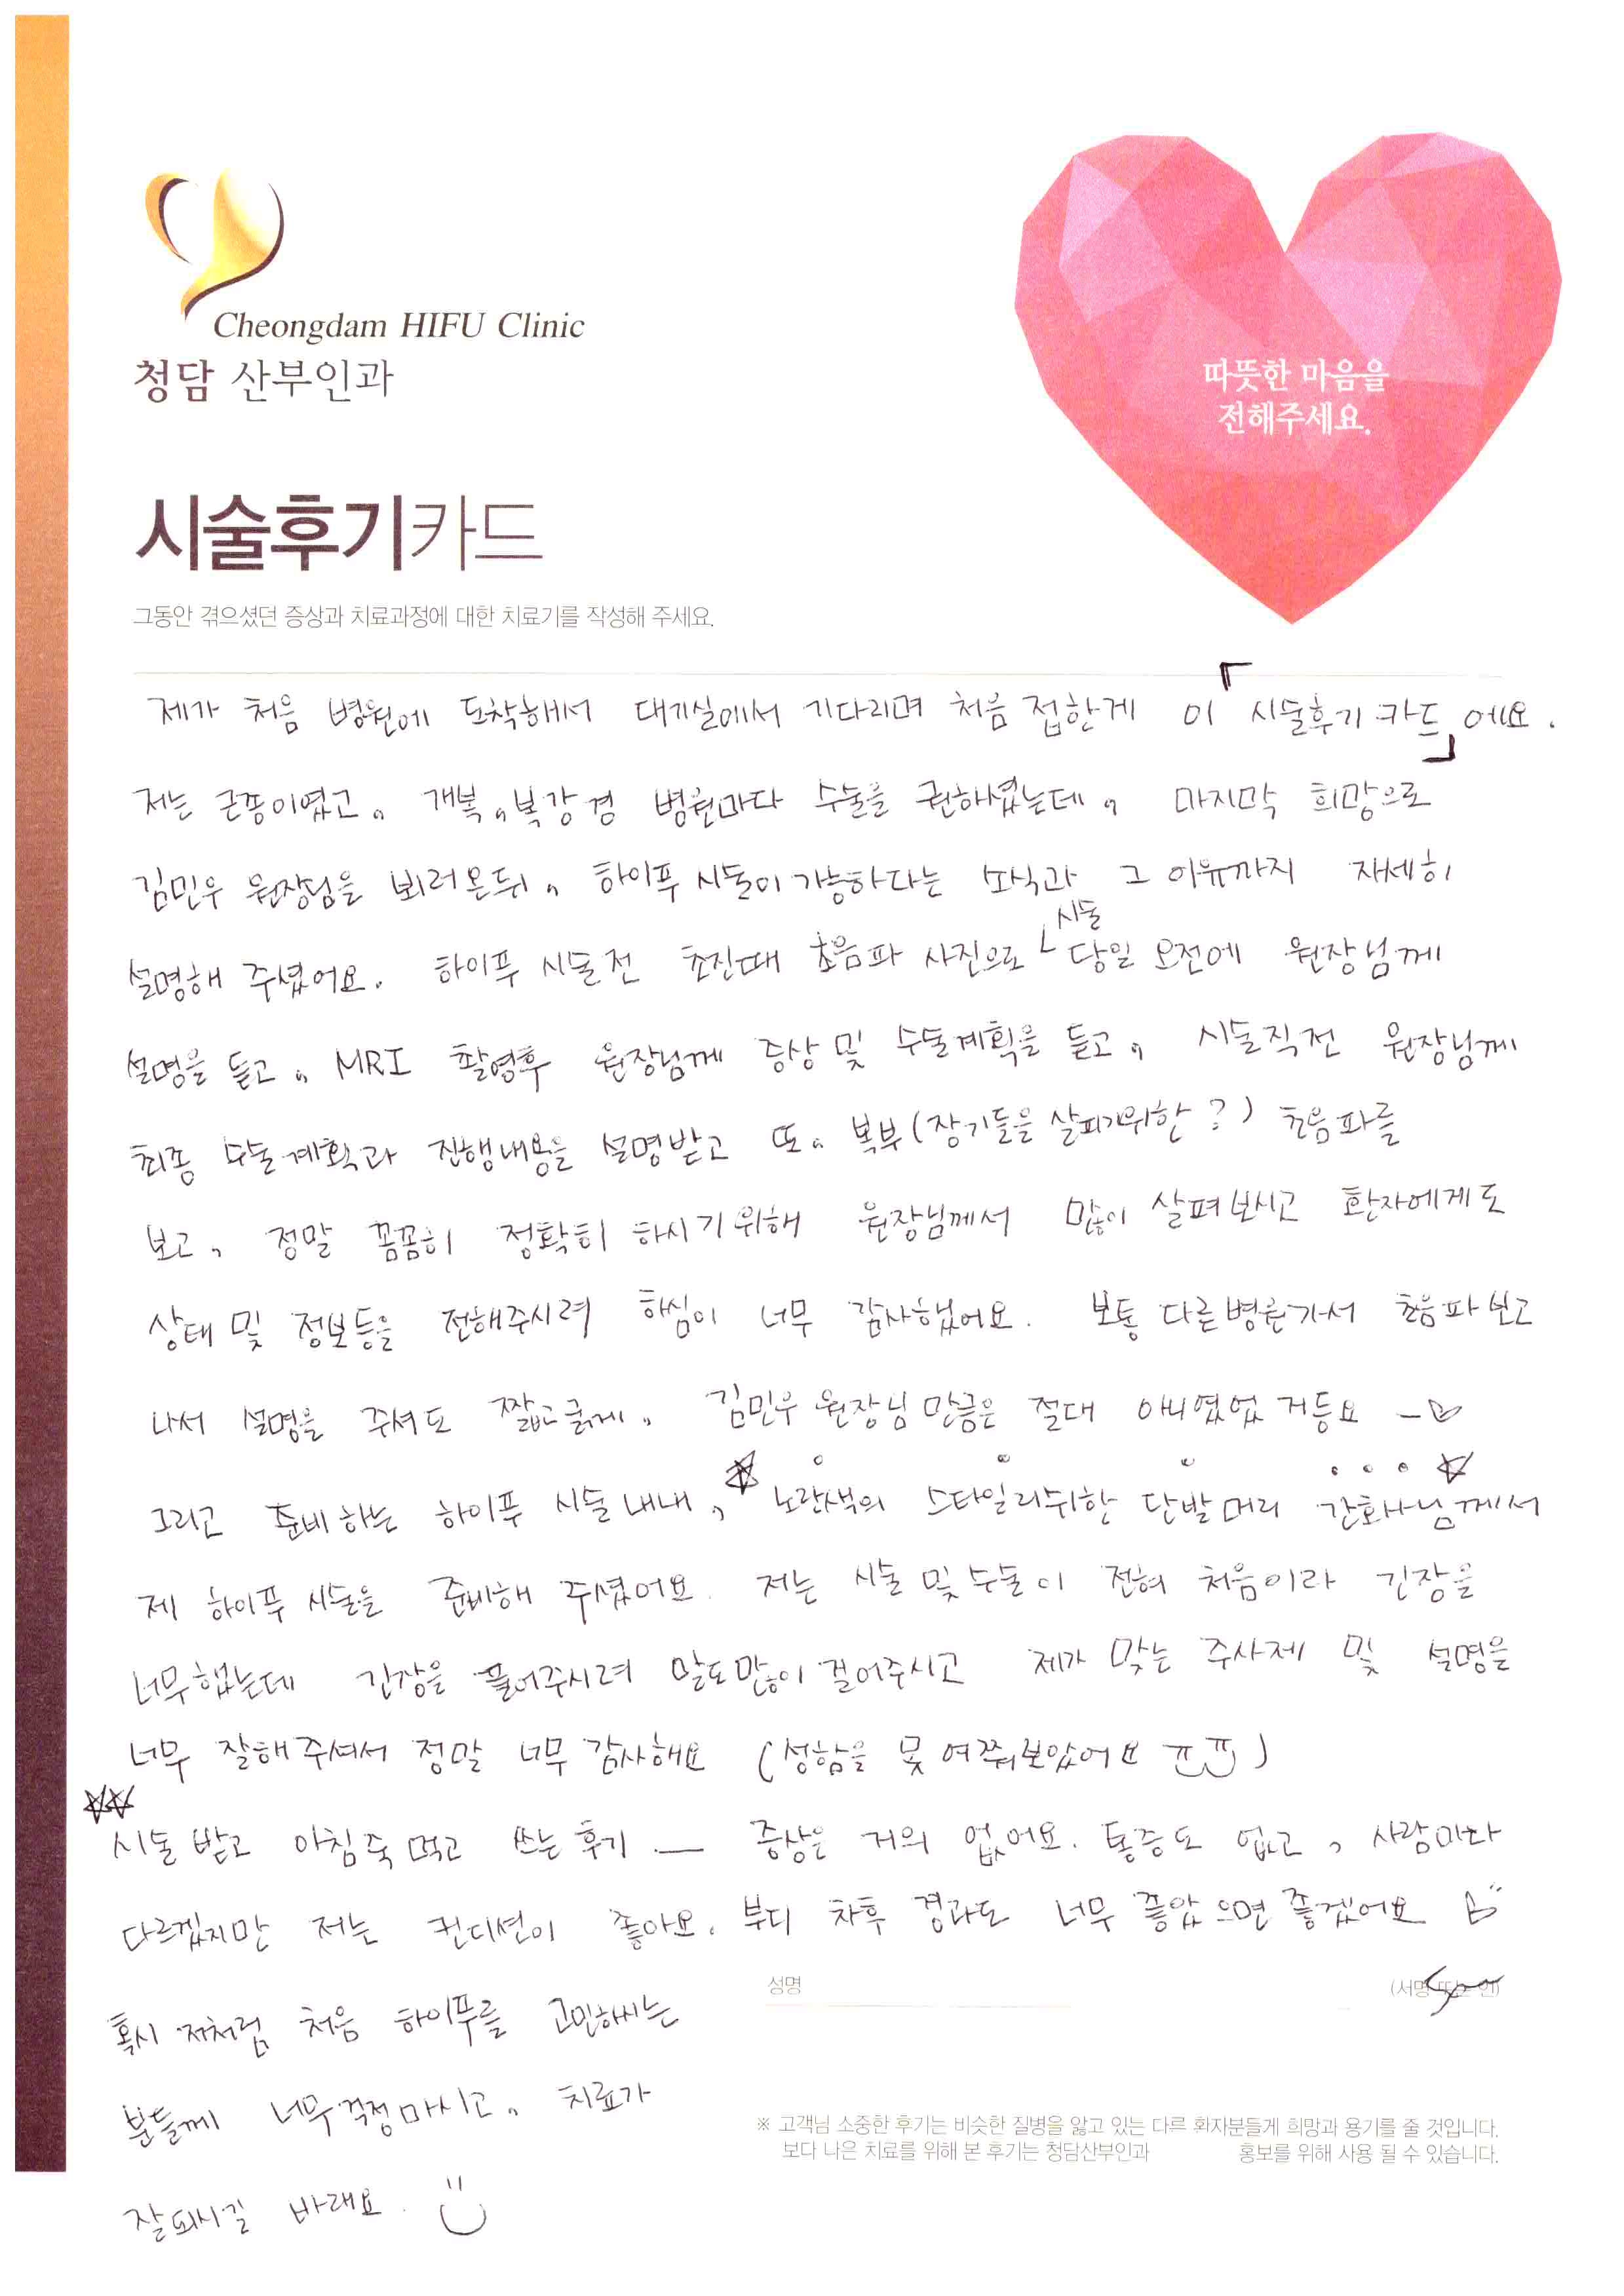 Cheongdam HIFU Clinic
청담 산부인과
따뜻한 마음을
전해주세요.
시술후기카드
그동안 겪으셨던 증상과 치료과정에 대한 치료기를 작성해 주세요.
제가 처음 병원에 도착해서 대기실에서 기다리며 처음 접한게 이 「시술후기카드」에요.
저는 근종이였고, 개복,복강경 병원마다 수술을 권하셨는데, 마지막 희망으로
김민우 원장님을 뵈러온뒤, 하이푸 시술이 가능하다는 소식과 그 이유까지 자세히
설명해 주셨어요. 하이푸 시술전 초진때 초음파 사진으로 시술 당일 오전에 원장님께
설명을 듣고, MRI 촬영후 원장님께 증상 및 수술계획을 듣고, 시술직전 원장님께
최종 수술계획과 진행내용을 설명받고 또, 복부(장기들을 살피기위한?) 초음파를
보고, 정말 꼼꼼히 정확히 하시기위해 원장님께서 많이 살펴보시고 환자에게도
상태 및 정보등을 전해주시려 하심이 너무 감사했어요. 보통 다른병원가서 초음파보고
나서 설명을 주셔도 짧고굵게, 김민우 원장님만큼은 절대 아니였었거등요 -♡
그리고 준비하는 하이푸 시술내내, ☆노란색의 스타일리쉬한 단발머리 간호사님☆께서
제 하이푸 시술을 준비해 주셨어요. 저는 시술 및 수술이 전혀 처음이라 긴장을
너무했는데 긴장을 풀어주시려 말도많이 걸어주시고 제가 맞는 주사제 및 설명을
너무 잘해주셔서 정말 너무 감사해요 (성함을 못 여쭤보았어요 ㅠㅠ)
☆☆
시술받고 아침죽먹고 쓰는후기 — 증상은 거의 없어요. 통증도 없고, 사람마다
다르겠지만 저는 컨디션이 좋아요. 부디 차후 경과도 너무 좋았으면 좋겠어요 ♡
성명 (서명 또는 인)
혹시 저처럼 처음 하이푸를 고민하시는
분들께 너무걱정마시고, 치료가
잘되시길 바래요. :)
※ 고객님 소중한 후기는 비슷한 질병을 앓고 있는 다르 환자분들게 희망과 용기를 줄 것입니다.
보다 나은 치료를 위해 본 후기는 청담산부인과 홍보를 위해 사용 될 수 있습니다.